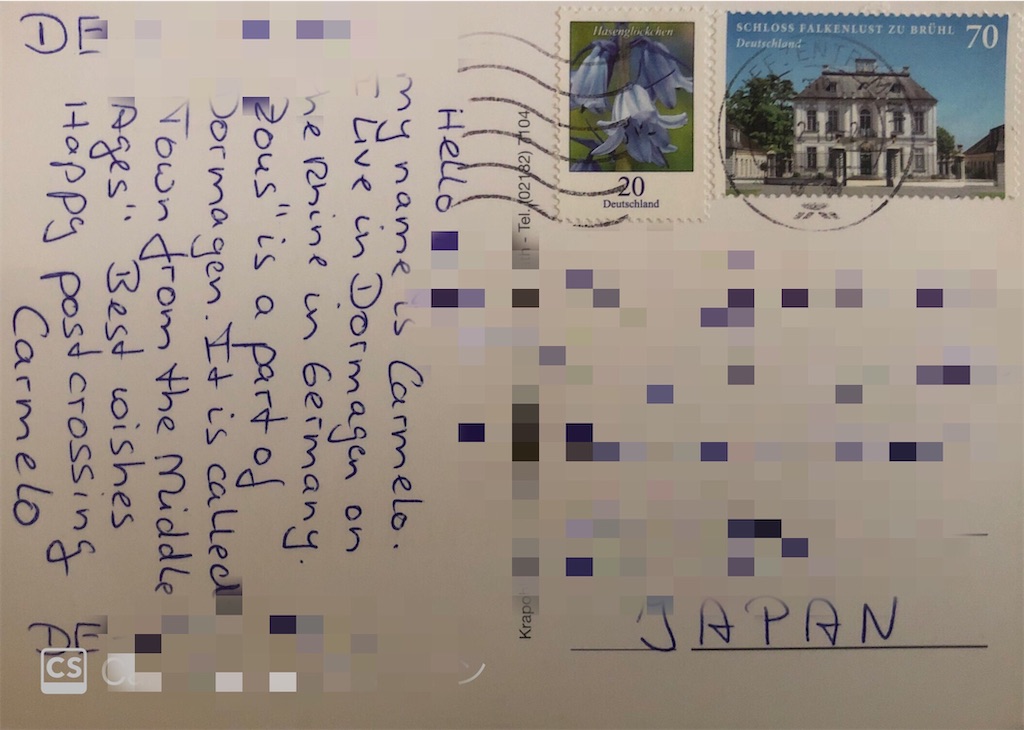 Hello
my name is Carmelo.
I Live in Dormagen on
the Rhine in Germany.
Zons" is a part of
Dormagen. It is called
Town from the Middle
Ages". Best wishes
Happy postcrossing
Carmelo
Tel. (02182) 7104
Hasenglöckchen
20
Deutschland
SCHLOSS FALKENLUST ZU BRÜHL 70
Deutschland
JAPAN
CS